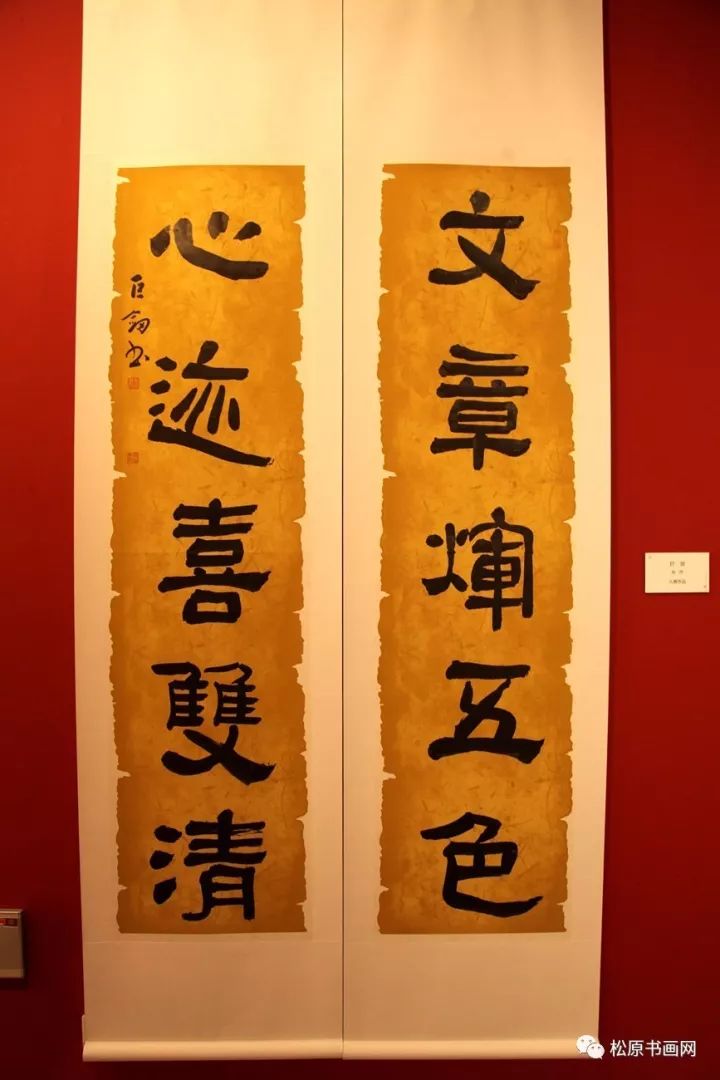 文章煇五色
心迹喜雙清
松原书画网